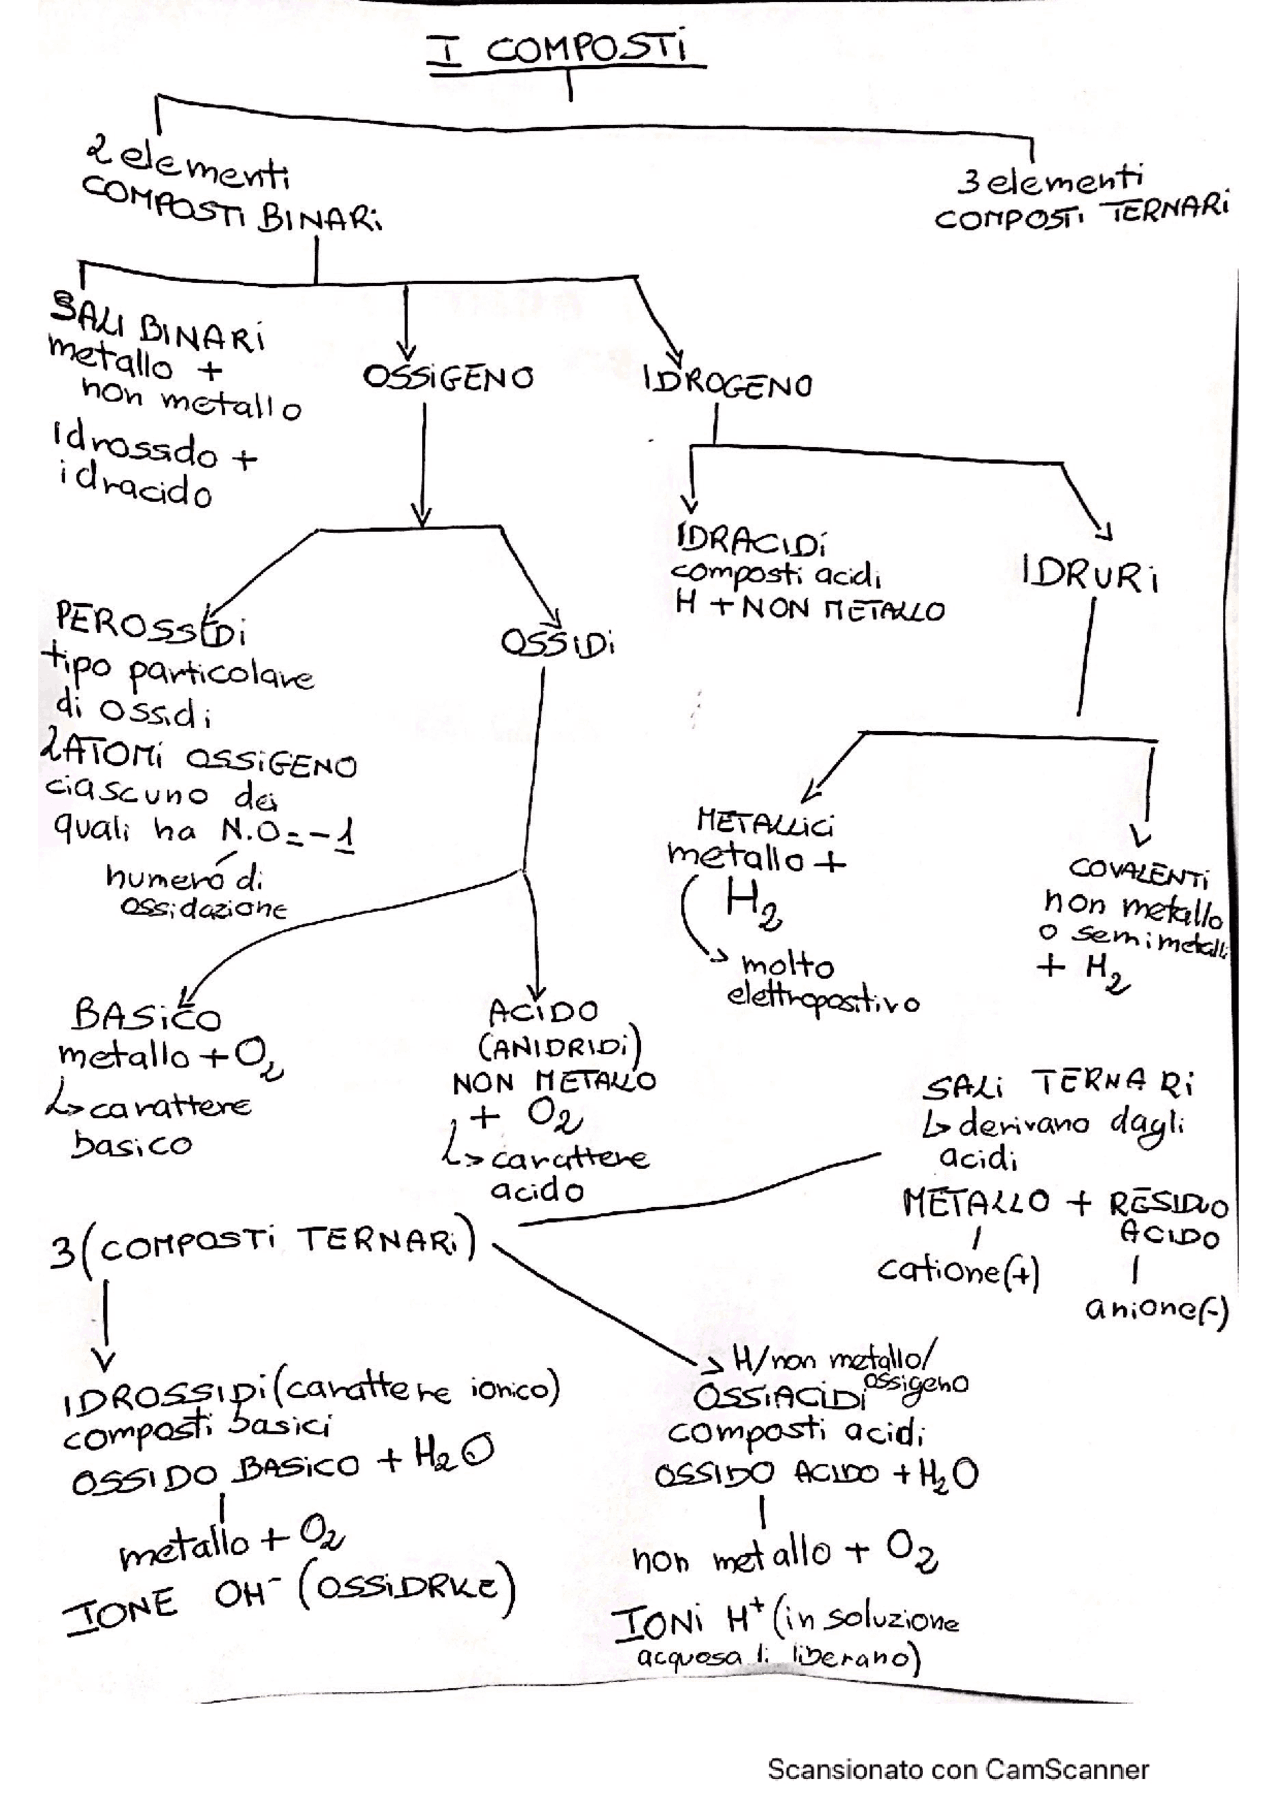 I COMPOSTi
2 elementi
COMPOSTI BINARi
3 elementi
COMPOSTi TERNARi
SALI BINARi
metallo +
non metallo
Idrossido +
idracido
OSSiGENO
IDROGENO
IDRACIDi
composti acidi
H + NON METALLO
IDRURi
PEROSSIDi
tipo particolare
di ossidi
2 ATOMi OSSiGENO
ciascuno dei
quali ha N.O = -1
numero di
ossidazione
OSSIDi
METALLici
metallo +
H2
molto
elettropositivo
COVALENTi
non metallo
o semimetalli
+ H2
BASiCO
metallo + O2
↳ carattere
basico
ACiDO
(ANIDRIDi)
NON METALLO
+ O2
↳ carattere
acido
SALi TERNARi
↳ derivano dagli
acidi
METALLO + RESIDUO
ACIDO
catione(+)
anione(-)
3 (COMPOSTi TERNARi)
IDROSSIDi (carattere ionico)
composti basici
OSSIDO BASiCO + H2O
metallo + O2
IONE OH⁻ (OSSiDRILE)
H/non metallo/
ossigeno
OSSiACiDi
composti acidi
OSSIDO ACIDO + H2O
non metallo + O2
IONi H⁺ (in soluzione
acquosa li liberano)
Scansionato con CamScanner